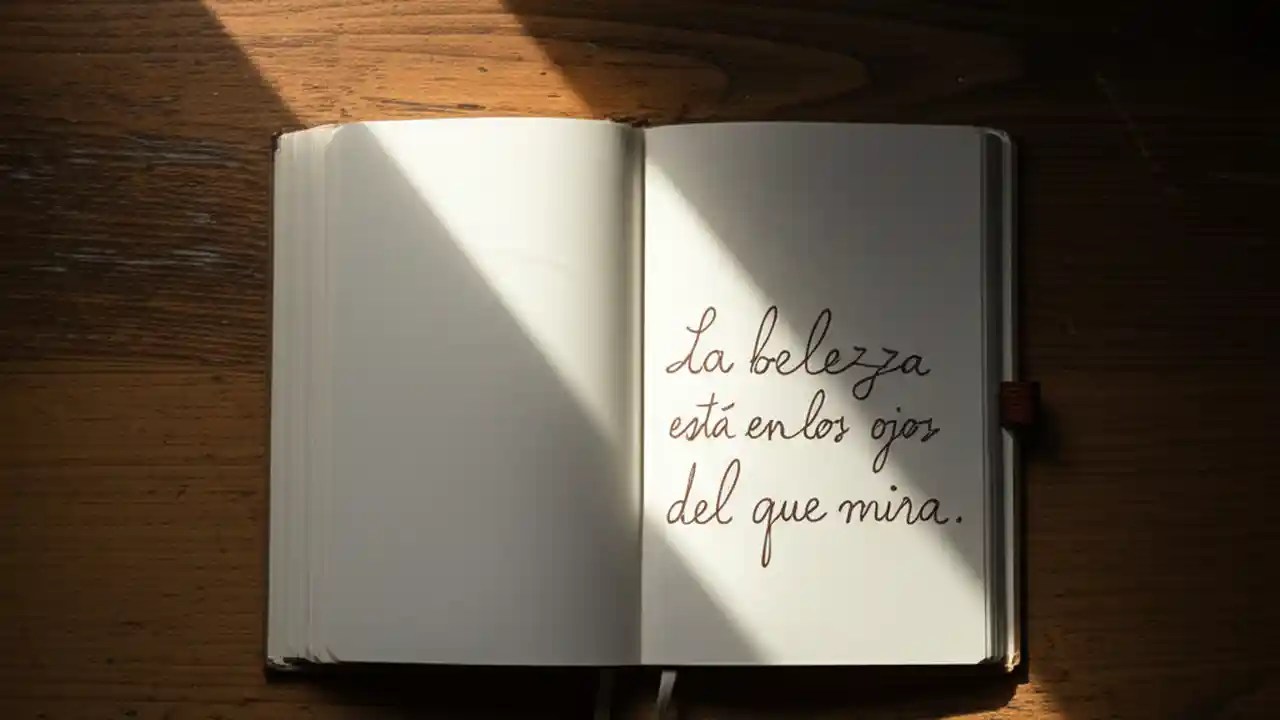 La belezza
está en los ojos
del que mira.